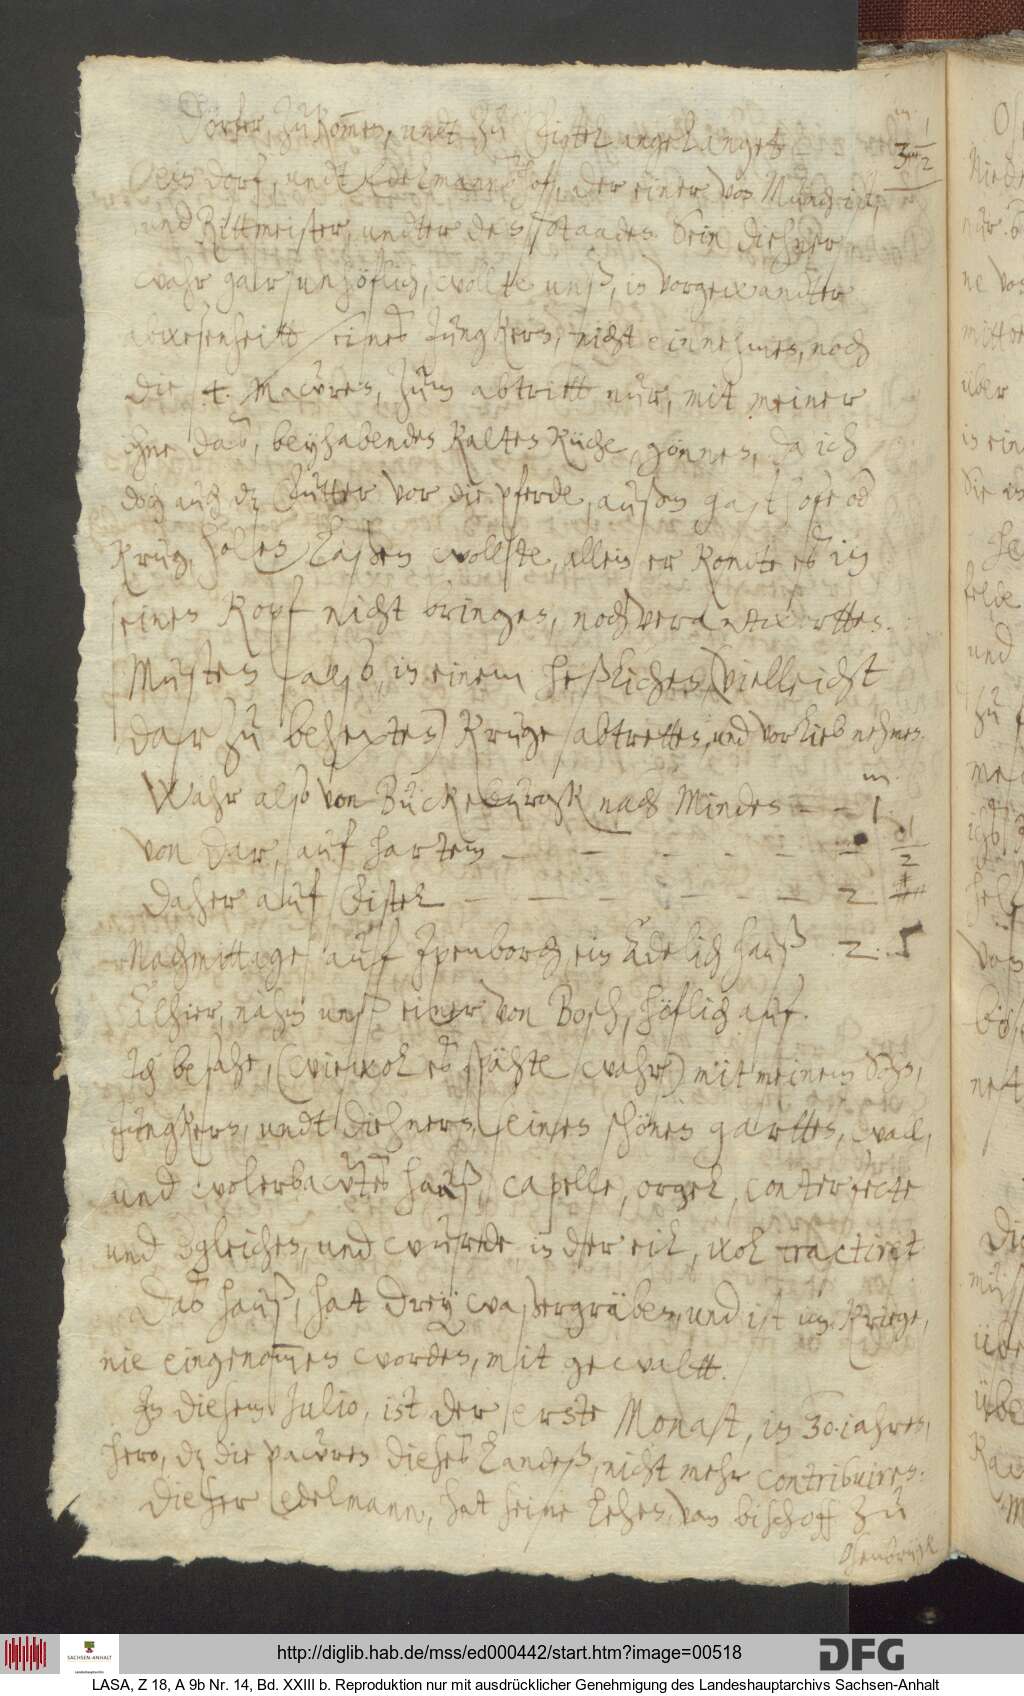 Dörfer, zukom̄en, undt zu Eistel angehanget
m
3 1/2
Dorf, undt Edelmanns hof, der einer von Münch ist,
und Rittmeister, undter des Staades. Sein diehner
wahr gar unhöflich, wollte unß, in vorgewandter
abwesenheitt seines Jungkers, nicht einnehmen, noch
die 4 Mauren, zum abtritt nur, mit meiner
ohne das, beyhabenden kalten Küche, gönnen, da ich
doch auch dz Futter vor die pferde, außm gasthofe od
Krug, holen laßen wollte, allein er konte es in
seinen Kopf nicht bringen, noch verantwortten.
Musten also, in einem heßlichen (vielleicht
dar zu behexten) Kruge abtretten, und vorlieb nehmen.
m.
Wahr also von Bückeburgk nach Minden – – 1
von dar, auf hartem – – – – – – 1/2
daher auf Eistel – – – – – – 2
Nachmittage auf Ipenborch ein Adelich hauß 2.
Alhier, nahm unß einer von Bosch, höflich auf.
Ich besahe, (wiewol es spähte wahr) mit meinem Sohn,
Jungkern, undt diehnern, seinen schönen gartten, wall,
und wolerbawtes hauß, capelle, orgel, conterfecte
und dgleichen, und wurde in der eil, wol tractiret
Das hauß, hat drey waßergräben, und ist im Kriege,
nie eingenom̄en worden, mit gewaltt.
In diesem Julio, ist der erste Monaht, in 30. iahren,
hero, dz die pauren dieses Landeß, nicht mehr contribuiren.
Dieser Edelmann, hat seine Lehen, von bischoff zu
Osenbrügk
http://diglib.hab.de/mss/ed000442/start.htm?image=00518
DFG
SACHSEN-ANHALT
LASA, Z 18, A 9b Nr. 14, Bd. XXIII b. Reproduktion nur mit ausdrücklicher Genehmigung des Landeshauptarchivs Sachsen-Anhalt